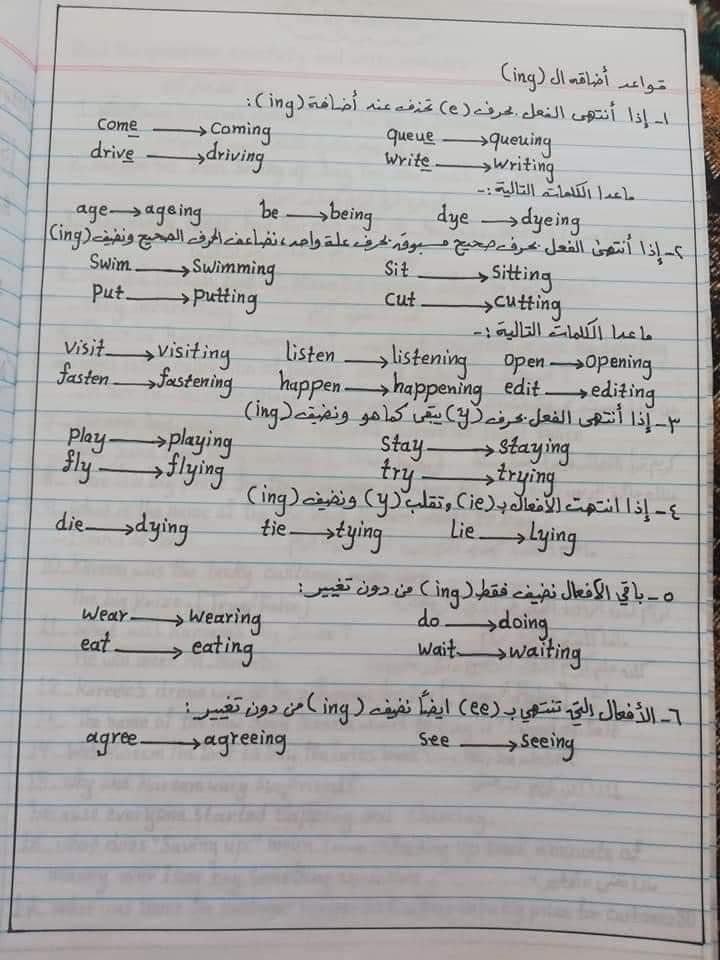 قواعد أضافه ال (ing)
١- إذا أنتهى الفعل بحرف (e) تحذف عند أضافة (ing):
come → coming queue → queuing
drive → driving write → writing
ماعدا الكلمات التالية:-
age → ageing be → being dye → dyeing
٢- إذا أنتهى الفعل بحرف صحيح مسبوقه بحرف علة واحد، نضاعف الحرف الصحيح ونضيف (ing)
Swim → Swimming Sit → Sitting
Put → putting cut → cutting
ماعدا الكلمات التالية:-
visit → visiting listen → listening open → opening
fasten → fastening happen → happening edit → editing
٣- إذا أنتهى الفعل بحرف (y) يبقى كما هو ونضيف (ing)
play → playing stay → staying
fly → flying try → trying
٤- إذا انتهت الأفعال بـ (ie)، تقلب (y) ونضيف (ing)
die → dying tie → tying Lie → Lying
٥- باقي الأفعال نضيف فقط (ing) من دون تغيير:
wear → wearing do → doing
eat → eating wait → waiting
٦- الأفعال التي تنتهي بـ (ee) ايضاً نضيف (ing) من دون تغيير:
agree → agreeing see → seeing